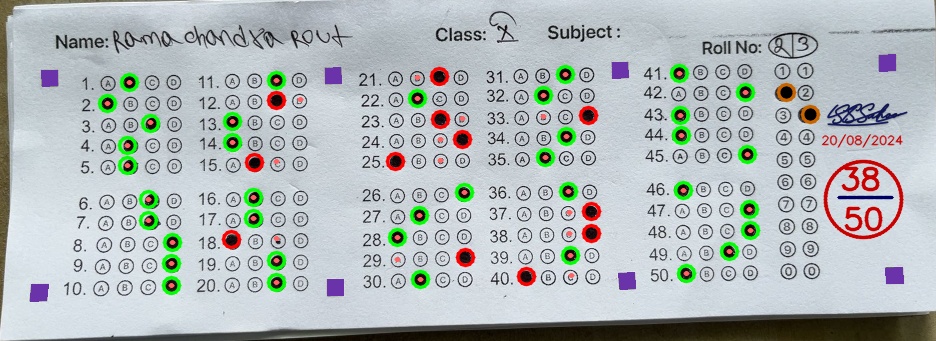 Name: Rama chandra Rout
Class: X
Subject :
Roll No: 2 3
1. A C D
2. B C D
3. A B D
4. A C D
5. A C D
6. A B D
7. A B D
8. A B C
9. A B C
10. A B C
11. A B D
12. A B
13. B C D
14. B C D
15. A D
16. A C D
17. A C D
18. B D
19. A B D
20. A B D
21. A D
22. A C D
23. A B D
24. A B
25. B D
26. A B C
27. A C D
28. B C D
29. B C
30. A C D
31. A B D
32. A C D
33. A B
34. A B D
35. A C D
36. A B D
37. A B
38. A B
39. A B D
40. B D
41. B C D
42. A B C
43. B C D
44. B C D
45. A B C
46. B C D
47. A B C
48. A B C
49. A B D
50. B C D
1 1
2
3
4 4
5 5
6 6
7 7
8 8
9 9
0 0
20/08/2024
38
50